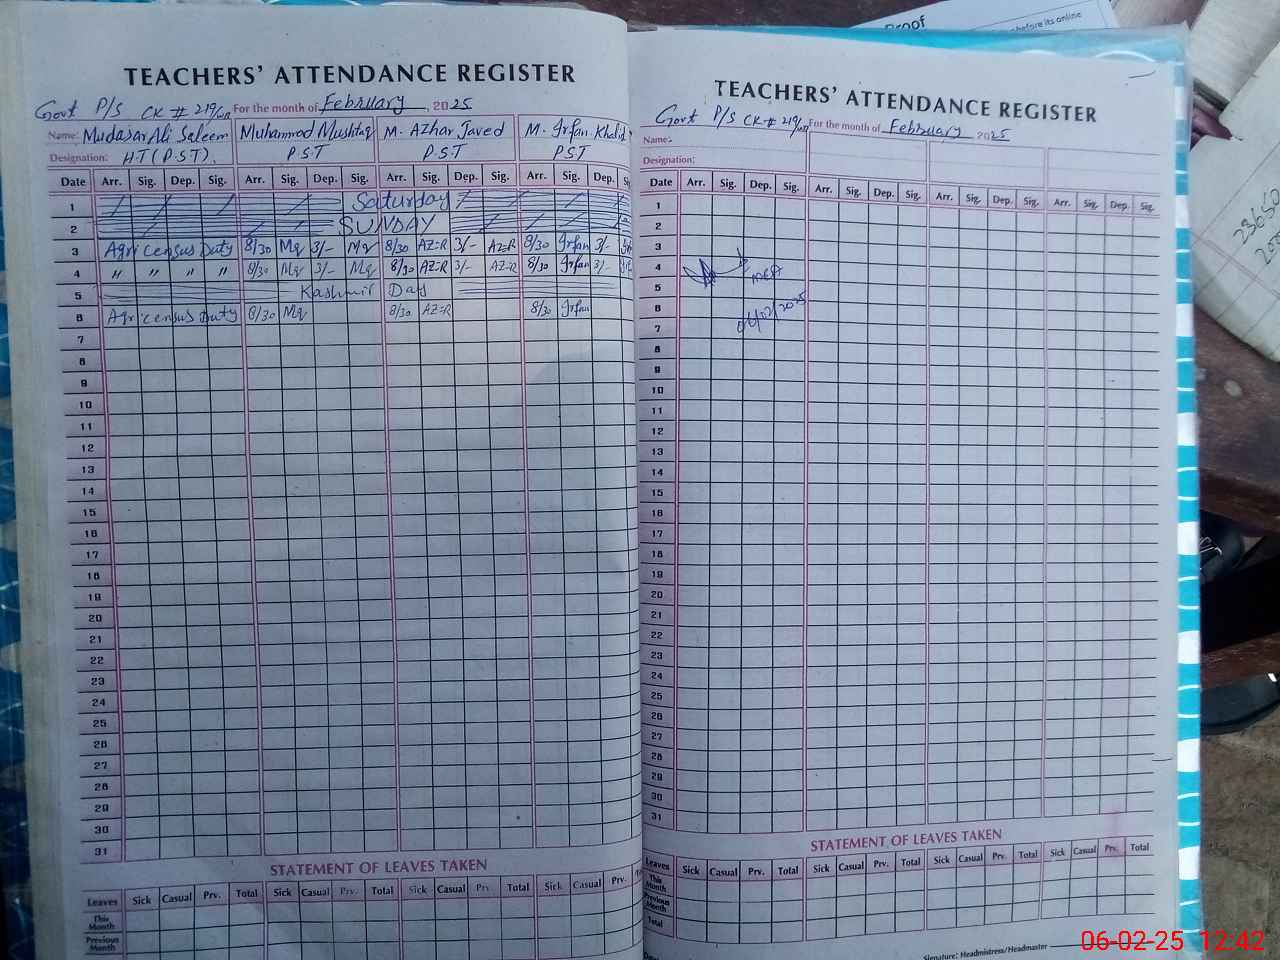 TEACHERS' ATTENDANCE REGISTER
Govt P/S For the month of February, 2025
Name: Mudasar Ali Saleem Muhammad Mushtaq M. Azhar Javed M. Irfan Khalid
Designation: H.T (P.S.T). P.S.T P.S.T P.S.T
Date Arr. Sig. Dep. Sig. Arr. Sig. Dep. Sig. Arr. Sig. Dep. Sig. Arr. Sig. Dep.
1 Saturday
2 SUNDAY
3 Agri census Duty 8/30 Mq 3/- Mq 8/30 AZ=R 3/- AZ=R 8/30 Irfan 3/-
4 " " " " 8/30 Mq 3/- Mq 8/30 AZ=R 3/- AZ=R 8/30 Irfan 3/-
5 Kashmir Day
6 Agri census Duty 8/30 Mq 8/30 AZ=R 8/30 Irfan
7
8
9
10
11
12
13
14
15
16
17
18
19
20
21
22
23
24
25
26
27
28
29
30
31
STATEMENT OF LEAVES TAKEN
Leaves Sick Casual Prv. Total Sick Casual Prv. Total Sick Casual Prv. Total Sick Casual Prv.
This Month
Previous Month
TEACHERS' ATTENDANCE REGISTER
Govt P/S For the month of February 2025
Name:
Designation:
Date Arr. Sig. Dep. Sig. Arr. Sig. Dep. Sig. Arr. Sig. Dep. Sig. Arr. Sig. Dep. Sig.
1
2
3
4
5
6
7
8
9
10
11
12
13
14
15
16
17
18
19
20
21
22
23
24
25
26
27
28
29
30
31
06/02/2025
STATEMENT OF LEAVES TAKEN
Leaves Sick Casual Prv. Total Sick Casual Prv. Total Sick Casual Prv. Total Sick Casual Prv. Total
This Month
Previous Month
Total
Signature: Headmistress/Headmaster
Proof
before its online
06-02-25 12:42